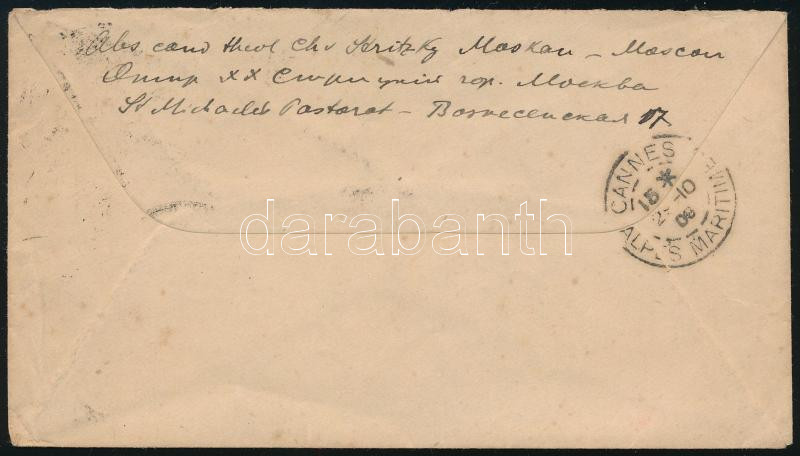 Abs. cand theol Chr Stritzky Moskau – Moscou
Отпр. XX Стрицкій гор. Москва
St Michaelis Pastorat – Вознесенская 17
CANNES
15 *
2 -10
08
ALPES MARITIMES
darabanth